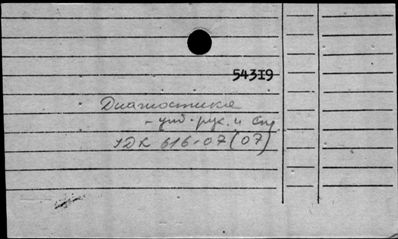 54319
Диагностика
- уч. рук. и спр
УДК 616-07(07)